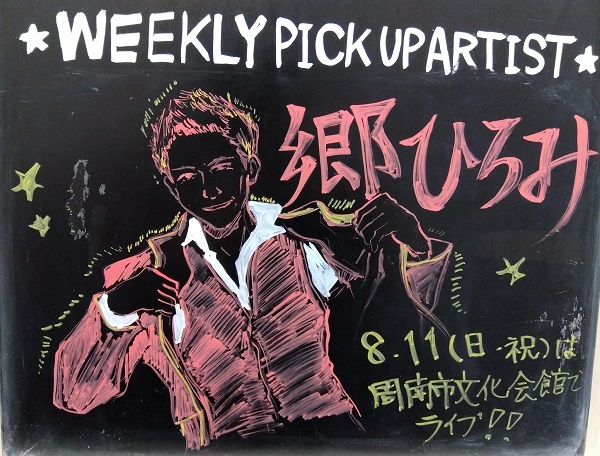 ★WEEKLY PICK UP ARTIST★
郷ひろみ
8.11(日・祝)は
周南市文化会館で
ライブ!!